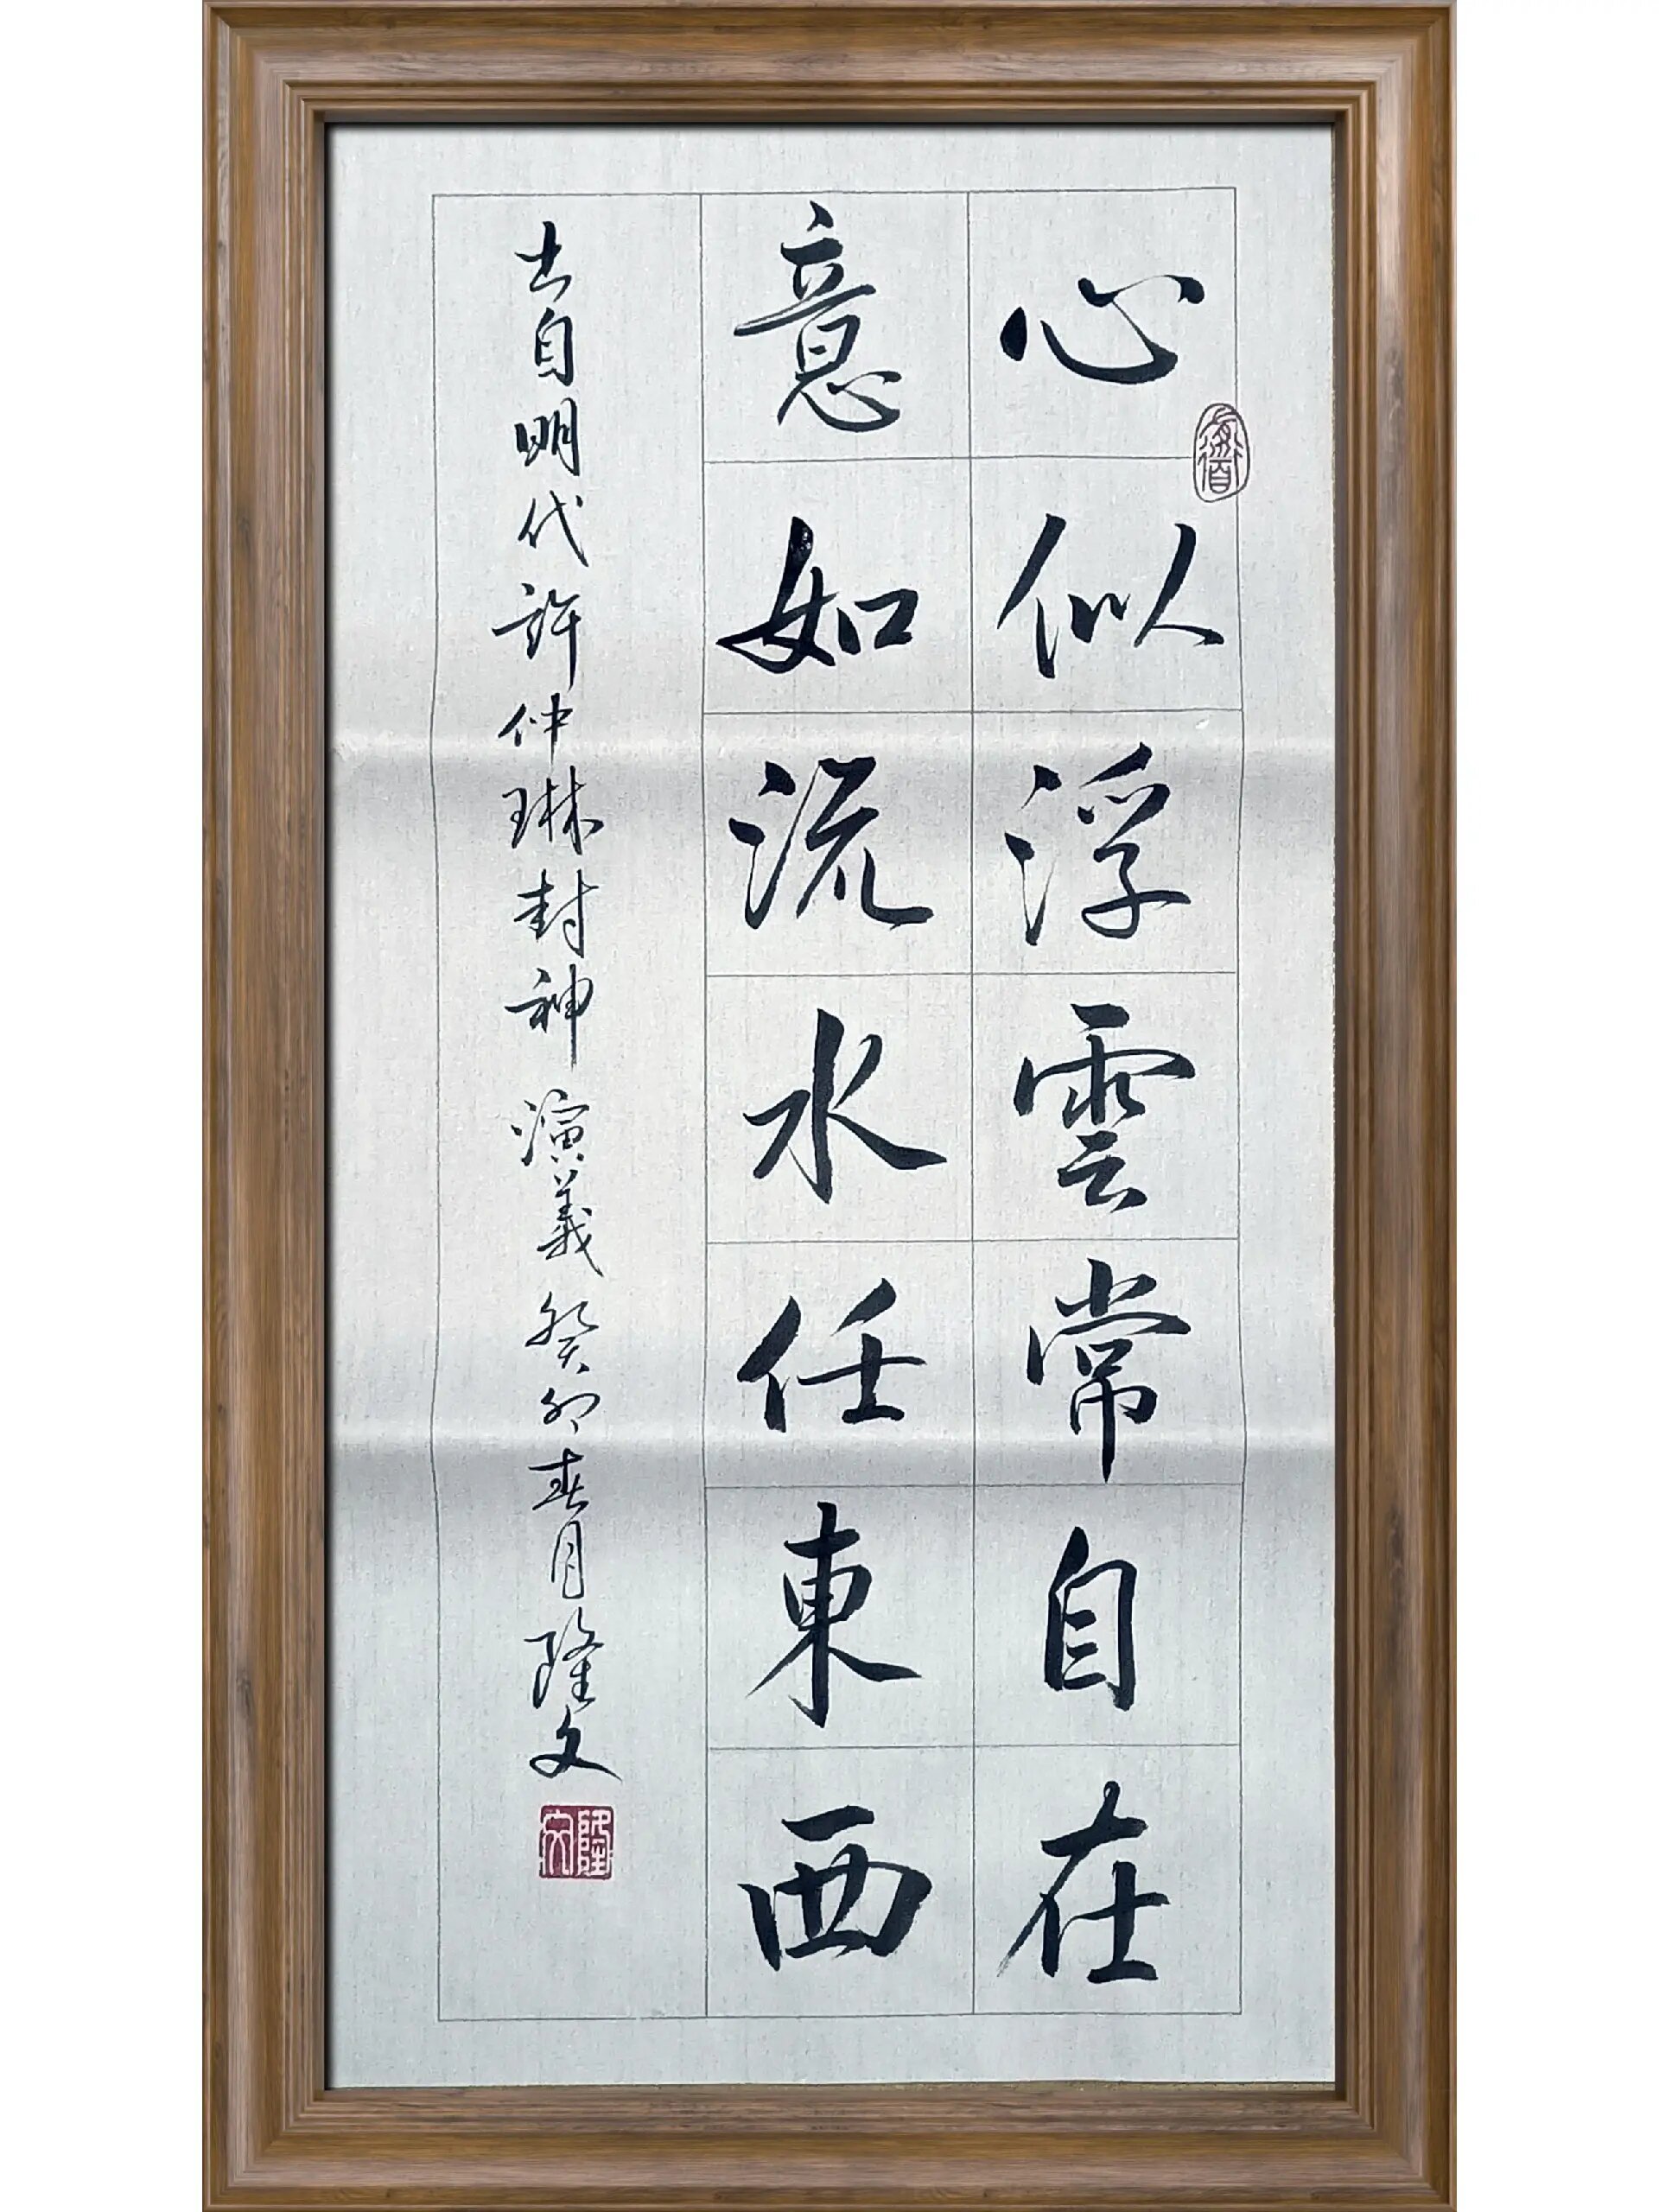 心似浮雲常自在
意如流水任東西
出自明代許仲琳封神演義癸卯春月隆文
隆文